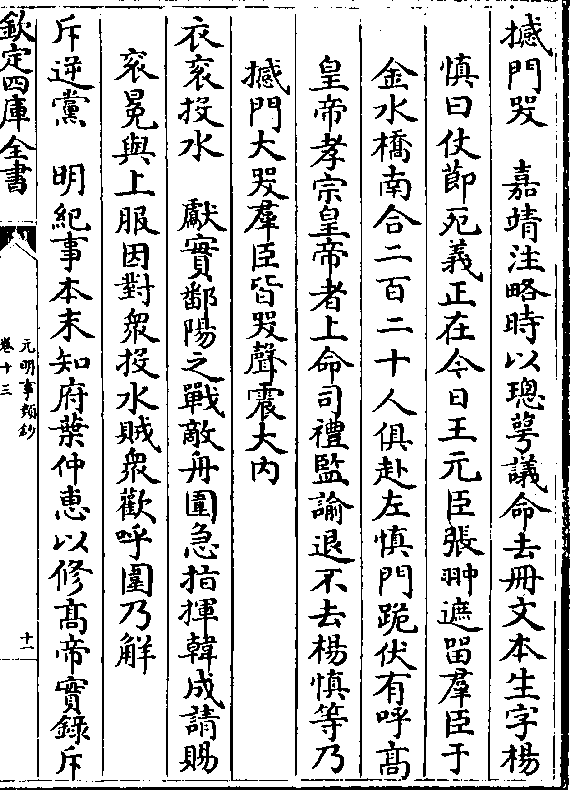 撼門哭　嘉靖注略時以璁萼議命去冊文本生字楊
慎曰仗節死義正在今日王元臣張翀遮留羣臣于
金水橋南合二百二十人俱赴左慎門跪伏有呼髙
皇帝孝宗皇帝者上命司禮監諭退不去楊慎等乃
撼門大哭羣臣皆哭聲震大内
衣衮投水　獻實鄱陽之戰敵舟圍急指揮韓成請賜
衮冕與上服因對衆投水賊衆歡呼圍乃解
斥逆黨　明紀事本末知府葉仲惠以修髙帝實錄斥
欽定四庫全書
元明事類鈔
卷十三
十一